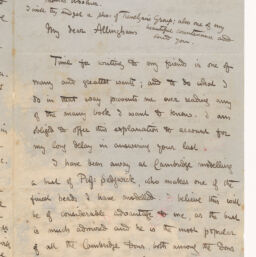 Thomas Woolner.
I will try and get a photo of Trevelyan Group; also one of my
beautiful countenance and
send you.
My dear Allingham
Time for writing to my friends is one of
many and greatest wants; and to do what I
do in that way prevents me ever reading any
of the many books I want to know. I am
obliged to offer this explanation to account for
my long delay in answering your last.
I have been away at Cambridge modelling
a bust of Prof: Sedgwick, who makes one of the
finest heads I have modelled. I believe this will
be of considerable advantage to me, as the bust
is much admired and he is the most popular
of all the Cambridge Dons both among the Dons